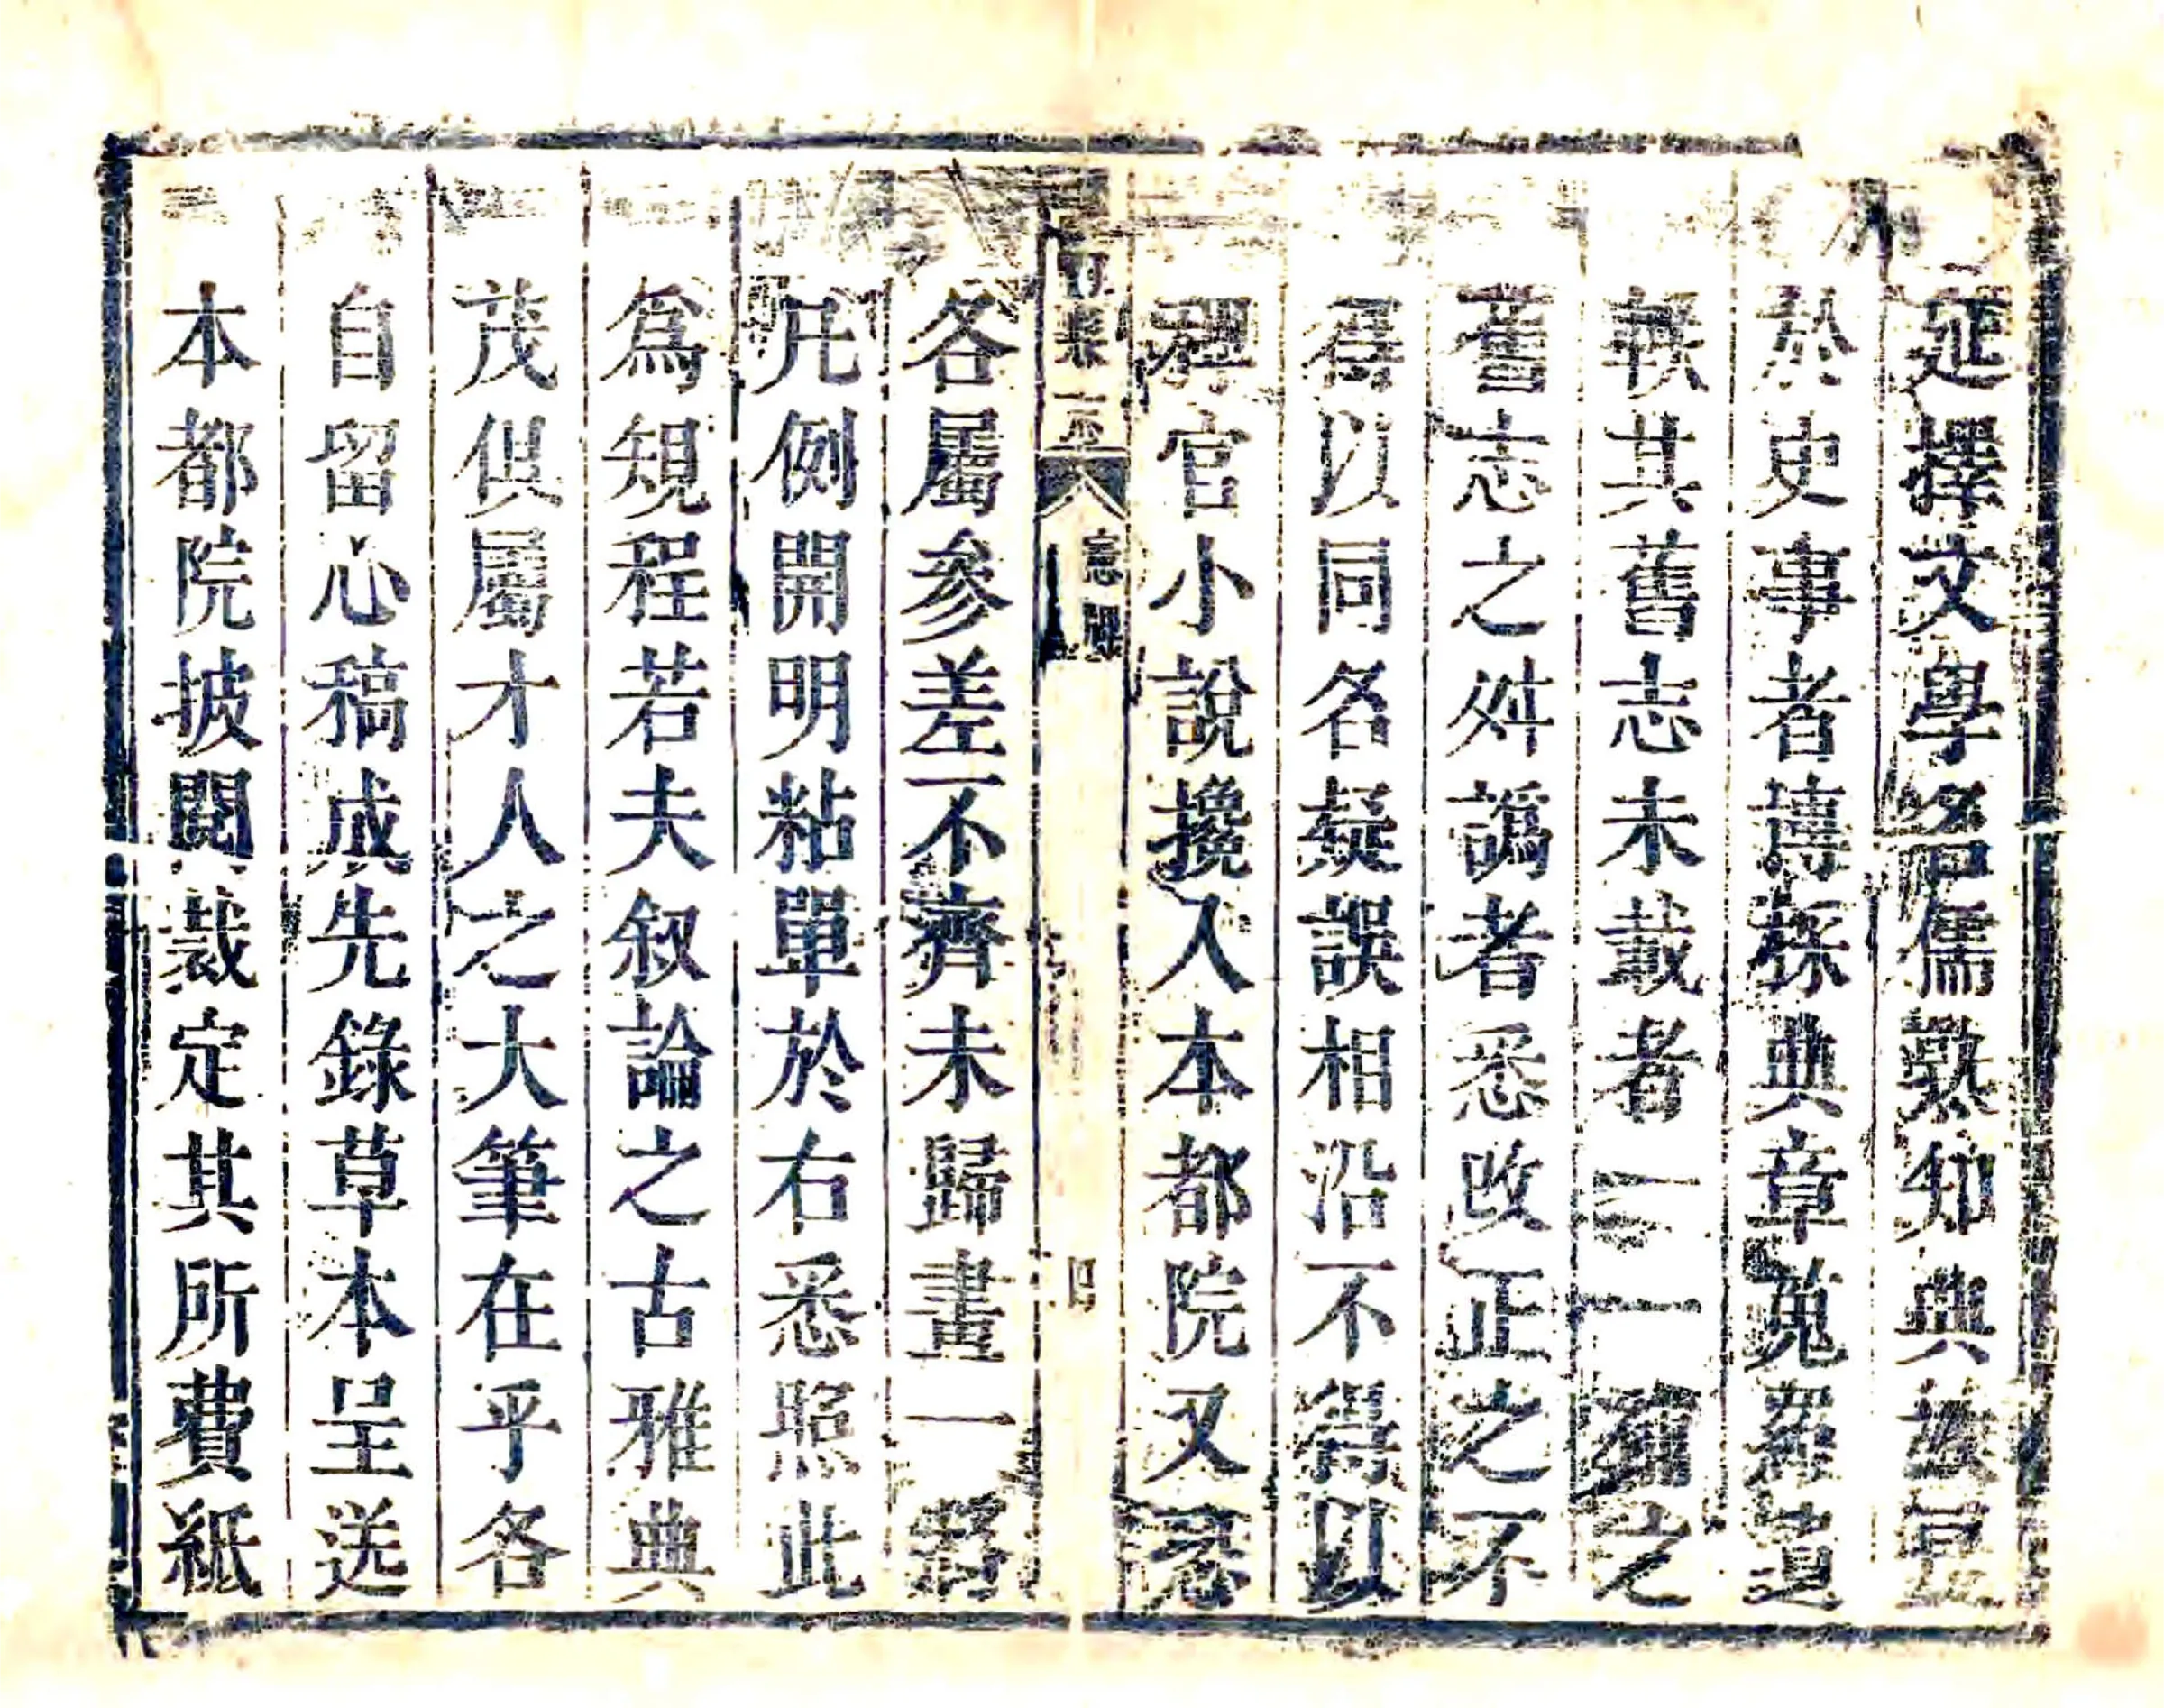 延擇文學名儒熟知典故兄
於史事者博採典章蒐羅遺
軼其舊志未載者一一補之
舊志之舛譌者悉改正之不
得以同名疑誤相沿不得以
稗官小說攙入本都院又恐
志牌
四
各屬參差不齊未歸畫一將
凡例開明粘單於右悉照此
為規程若夫叙論之古雅典
茂俱屬才人之大筆在乎各
自留心稿成先錄草本呈送
本都院披閱裁定其所費紙